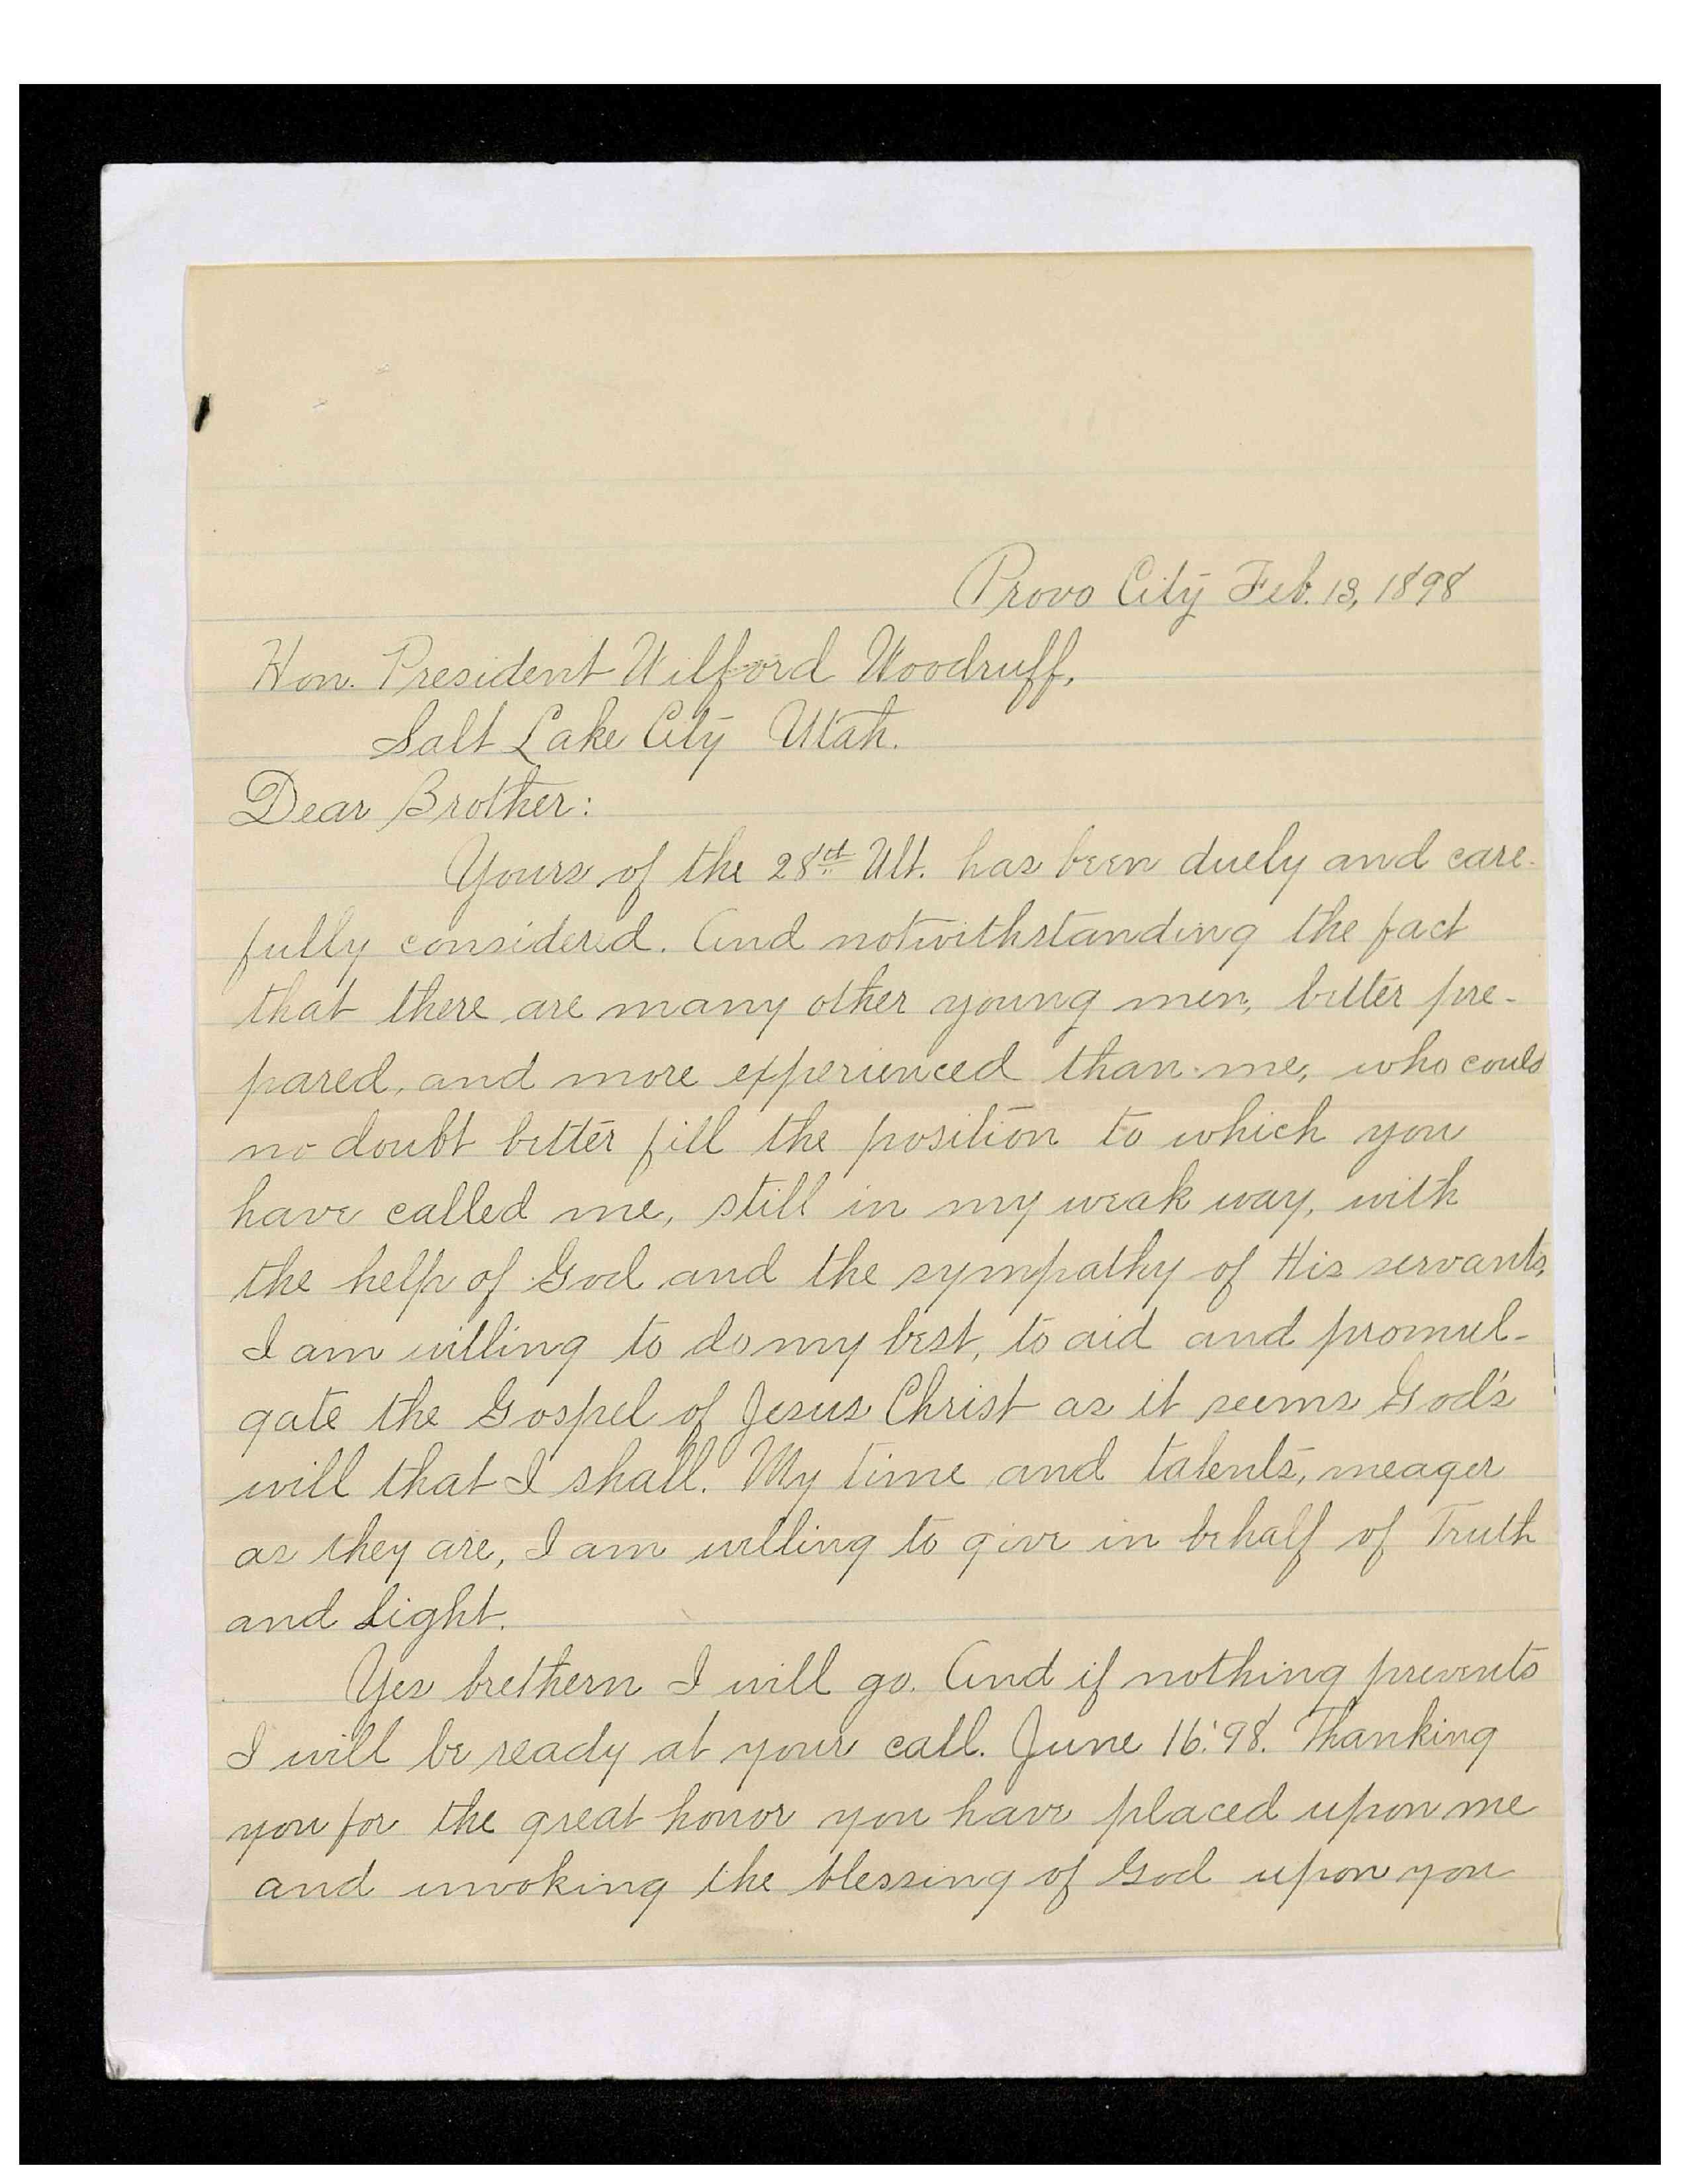 Provo City Feb. 13, 1898
Hon. President Wilford Woodruff,
Salt Lake City Utah.
Dear Brother:
Yours of the 28th Ult. has been duely and care-
fully considered. And notwithstanding the fact
that there are many other young men, better pre-
pared, and more experienced than me, who could
no doubt better fill the position to which you
have called me, still in my weak way, with
the help of God and the sympathy of His servants,
I am willing to do my best, to aid and promul-
gate the Gospel of Jesus Christ as it seems God's
will that I shall. My time and talents, meager
as they are, I am willing to give in behalf of Truth
and Light.
Yes brethern I will go. And if nothing prevents
I will be ready at your call. June 16, '98. Thanking
you for the great honor you have placed upon me
and invoking the blessing of God upon you